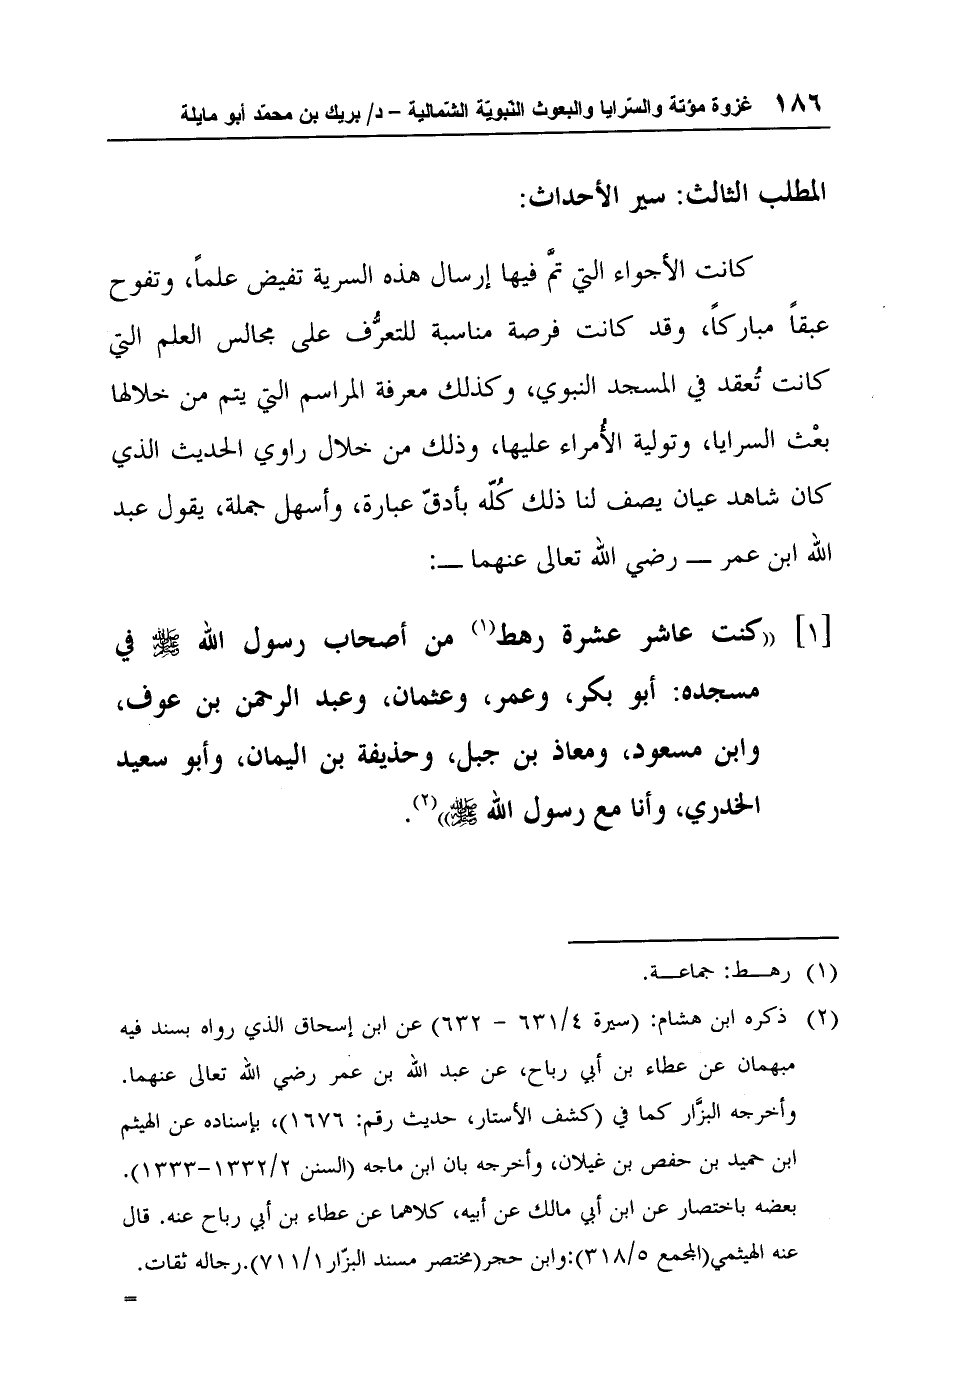 ١٨٦ غزوة مؤتة والسّرايا والبعوث النّبويّة الشّمالية – د/ بريك بن محمّد أبو مايلة
المطلب الثالث: سير الأحداث:
كانت الأجواء التي تمَّ فيها إرسال هذه السرية تفيض علماً، وتفوح
عبقاً مباركاً، وقد كانت فرصة مناسبة للتعرُّف على مجالس العلم التي
كانت تُعقد في المسجد النبوي، وكذلك معرفة المراسم التي يتم من خلالها
بعْث السرايا، وتولية الأُمراء عليها، وذلك من خلال راوي الحديث الذي
كان شاهد عيان يصف لنا ذلك كُلّه بأدقّ عبارة، وأسهل جملة، يقول عبد
الله ابن عمر ــ رضي الله تعالى عنهما ــ:
[١] ((كنت عاشر عشرة رهط(١) من أصحاب رسول الله ﷺ في
مسجده: أبو بكر، وعمر، وعثمان، وعبد الرحمن بن عوف،
وابن مسعود، ومعاذ بن جبل، وحذيفة بن اليمان، وأبو سعيد
الخدري، وأنا مع رسول الله ﷺ))(٢).
(١) رهـــط: جماعـــة.
(٢) ذكره ابن هشام: (سيرة ٦٣١/٤ – ٦٣٢) عن ابن إسحاق الذي رواه بسند فيه
مبهمان عن عطاء بن أبي رباح، عن عبد الله بن عمر رضي الله تعالى عنهما.
وأخرجه البزَّار كما في (كشف الأستار، حديث رقم: ١٦٧٦)، بإسناده عن الهيثم
ابن حميد بن حفص بن غيلان، وأخرجه بان ابن ماجه (السنن ١٣٣٢/٢–١٣٣٣).
بعضه باختصار عن ابن أبي مالك عن أبيه، كلاهما عن عطاء بن أبي رباح عنه. قال
عنه الهيثمي(المجمع ٣١٨/٥):وابن حجر(مختصر مسند البزّار٧١١/١).رجاله ثقات.
=